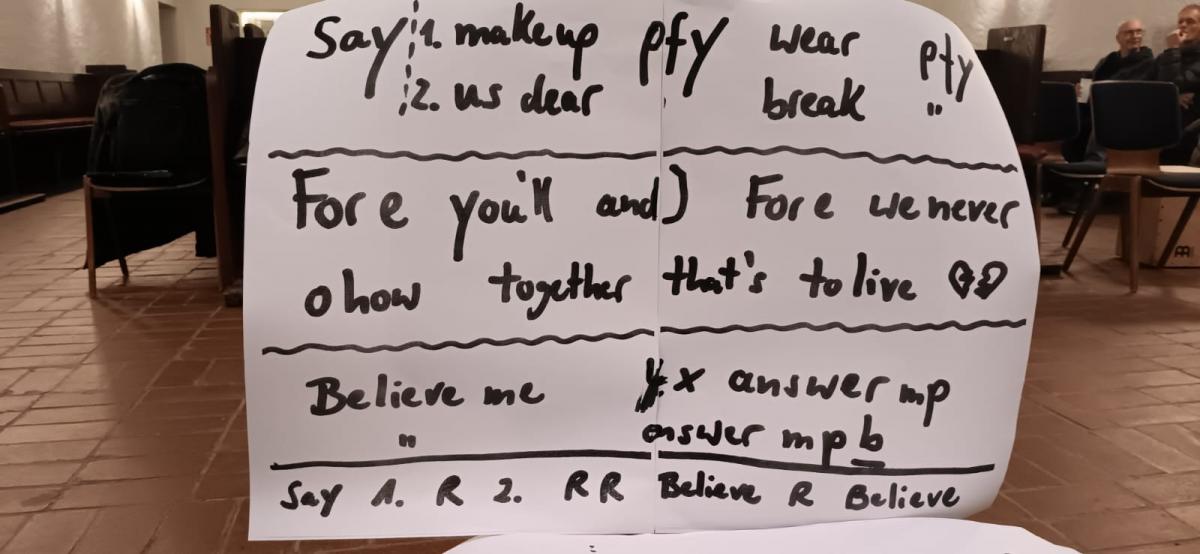 Say 1. makeup pfy wear pfy
2. us dear break "
Fore you'll and) Fore we never
o how together that's to live
Believe me x answer mp
" answer mp b
Say 1. R 2. RR Believe R Believe